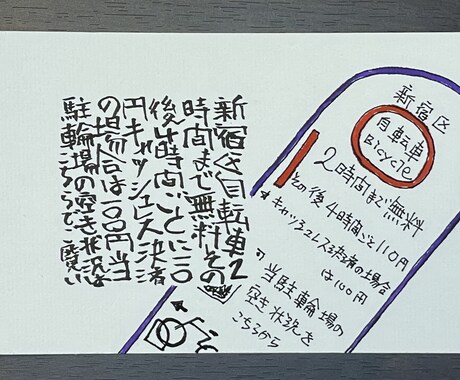 新宿区自転車2
時間まで無料その
後4時間ごとに一一〇
円キャッシュレス決済者
の場合は一〇〇円当
駐輪場の空き状況は
新宿区
自転車
Bicycle
2時間まで無料
その後4時間ごと110円
*キャッシュレス決済者の場合
は100円
当駐輪場の
空き状況を
こちらから